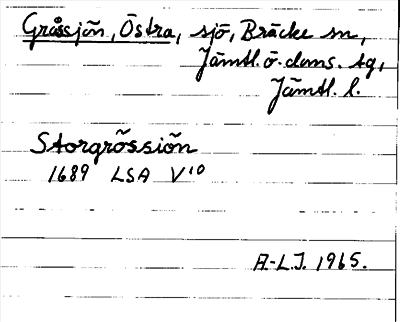 Gråssjön, Östra, sjö, Bräcke sn,
Jämtl. ö. doms. tg,
Jämtl. l.
Storgrössiön
1689 LSA V¹⁰
A-L.J. 1965.